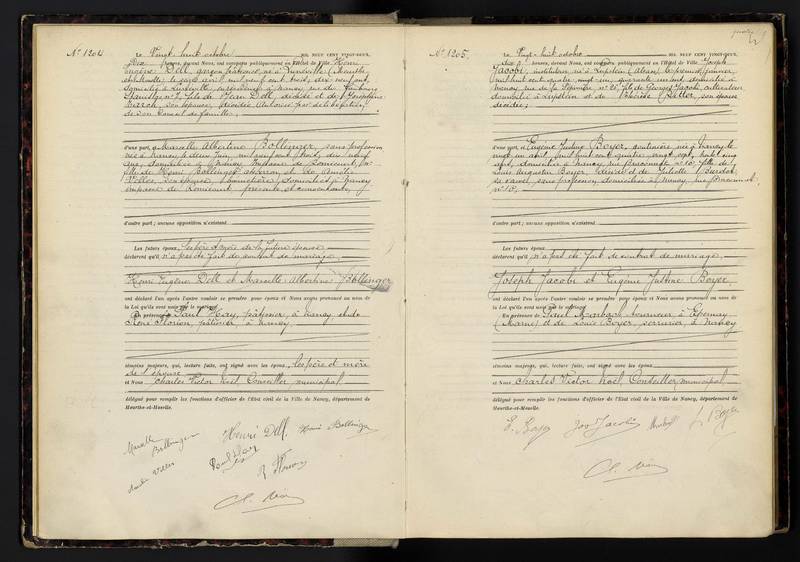 N° 1204
Le Vingt-huit octobre MIL NEUF CENT VINGT-DEUX,
Dix heures, devant Nous, ont comparu publiquement en l'Hôtel de Ville Henri
Eugène Dell, garçon pâtissier, né à Lunéville (Meurthe
et Moselle) le avril mil neuf cent trois, dix-neuf ans,
domicilié à Lunéville, en résidence à Nancy, rue du Faubourg
fils de Jean Dell, décédé et de Joséphine
son épouse, décédée. Autorisé par délibération
de son Conseil de famille.
d'une part, & Marcelle Albertine Bollinger, sans profession
née à Nancy le deux juin mil neuf cent trois, dix-neuf
ans, domiciliée à Nancy, Impasse de
fille de Henri Bollinger et de Amélie
son épouse, domiciliés à Nancy
impasse de présents et consentants.
d'autre part; aucune opposition n'existant
Les futurs époux, les père et mère de la future épouse
déclarent qu'il n'a pas été fait de contrat de mariage.
Henri Eugène Dell et Marcelle Albertine Bollinger
ont déclaré l'un après l'autre vouloir se prendre pour époux et Nous avons prononcé au nom de
la Loi qu'ils sont unis par le mariage.
En présence de Paul Hay, pâtissier, à Nancy et de
René Florion, pâtissier, à Nancy
témoins majeurs, qui, lecture faite, ont signé avec les époux, les père et mère
de l'épouse
et Nous Charles Victor Noël, Conseiller municipal
délégué pour remplir les fonctions d'officier de l'État civil de la Ville de Nancy, département de
Meurthe-et-Moselle.
Marcelle Bollinger
Henri Dell
Henri Bollinger
Paul Hay
R. Florion
N° 1205.
Le Vingt-huit octobre MIL NEUF CENT VINGT-DEUX,
heures, devant Nous, ont comparu publiquement en l'Hôtel de Ville Joseph
Jacobi, né à (Alsace) le premier janvier
mil huit cent quatre vingt-un, quarante un ans, domicilié à
Nancy, rue de la Pépinière n° 25, fils de Georges Jacobi, cultivateur
domicilié à et de Thérèse son épouse
décédée;
d'une part, & Eugénie Justine Boyer, couturière, née à Nancy le
vingt un avril mil huit cent quatre vingt sept, trente cinq
ans, domiciliée à Nancy, rue Braconnot n° 10, fille de
Louis Augustin Boyer, décédé et de Juliette
sa veuve, sans profession, domiciliée à Nancy, rue Braconnot
n° 10.
d'autre part; aucune opposition n'existant
Les futurs époux
déclarent qu'il n'a pas été fait de contrat de mariage.
Joseph Jacobi et Eugénie Justine Boyer,
ont déclaré l'un après l'autre vouloir se prendre pour époux et Nous avons prononcé au nom de
la Loi qu'ils sont unis par le mariage.
En présence de à Épernay
(Marne) et de Louis Boyer, serrurier à Nancy
témoins majeurs, qui, lecture faite, ont signé avec les époux
et Nous Charles Victor Noël, Conseiller municipal,
délégué pour remplir les fonctions d'officier de l'État civil de la Ville de Nancy, département de
Meurthe-et-Moselle.
E. Boyer
Jos Jacobi
L. Boyer